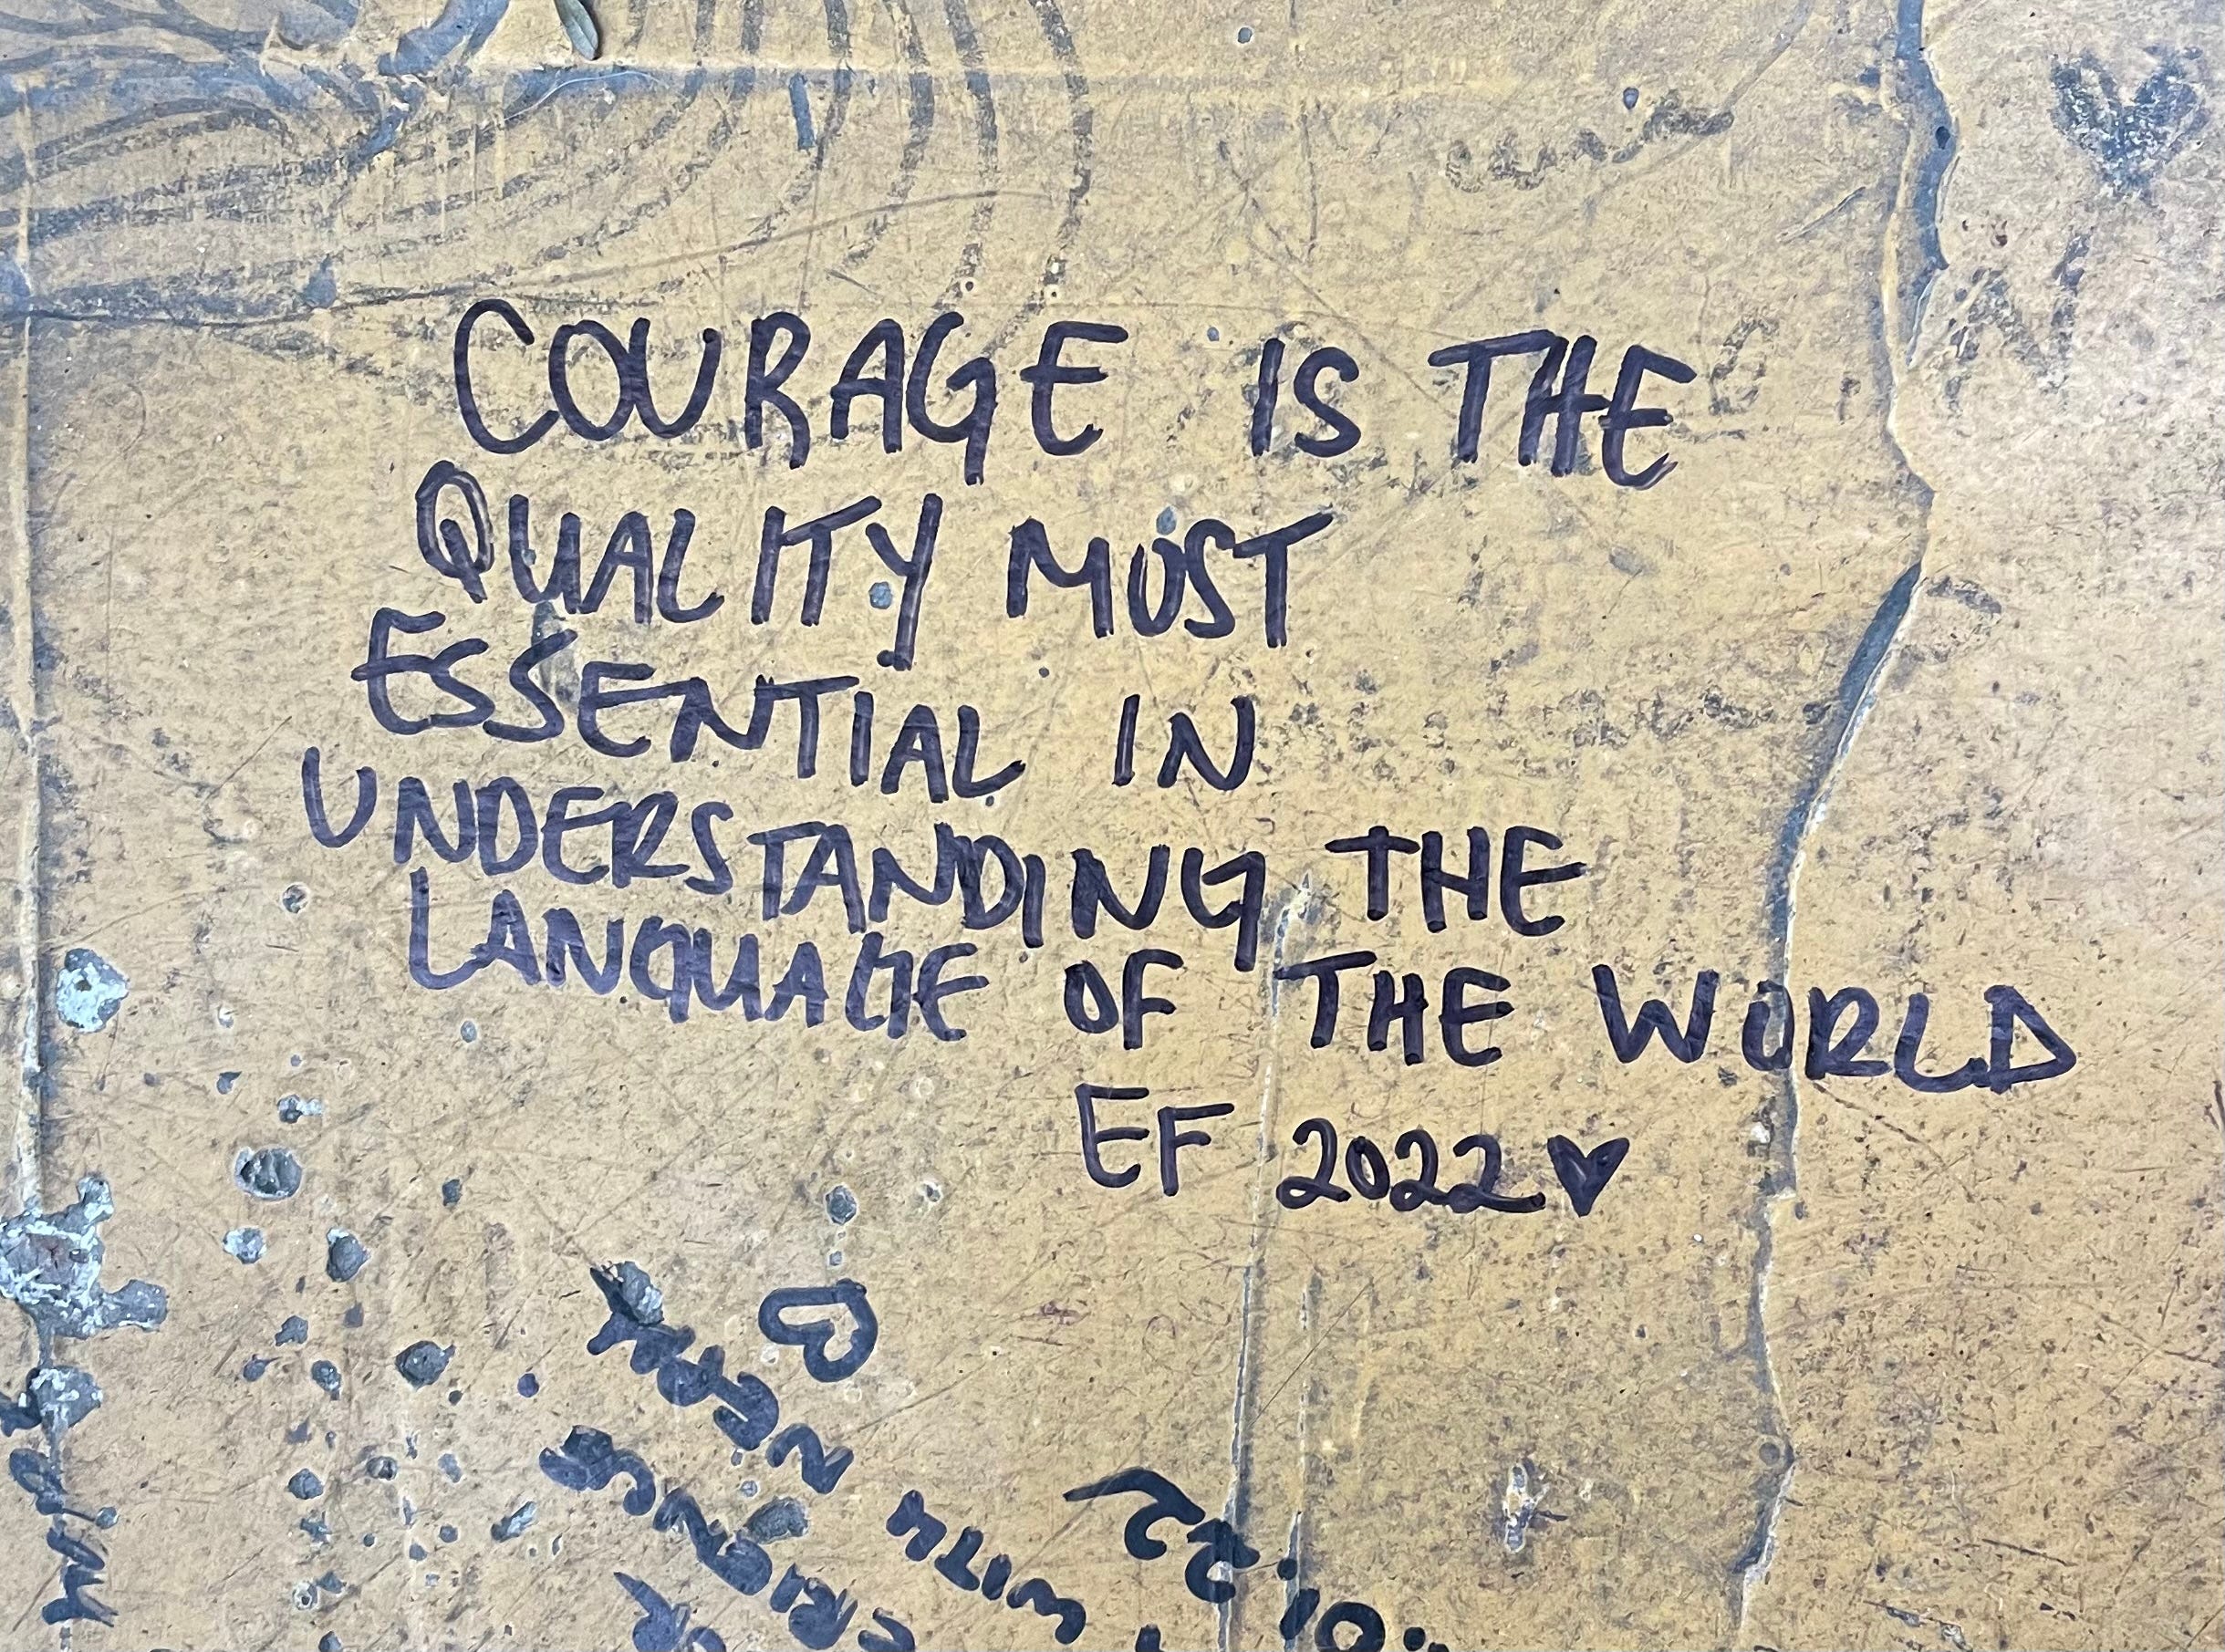 COURAGE IS THE
QUALITY MOST
ESSENTIAL IN
UNDERSTANDING THE
LANGUAGE OF THE WORLD
EF 2022 ♥
WITH